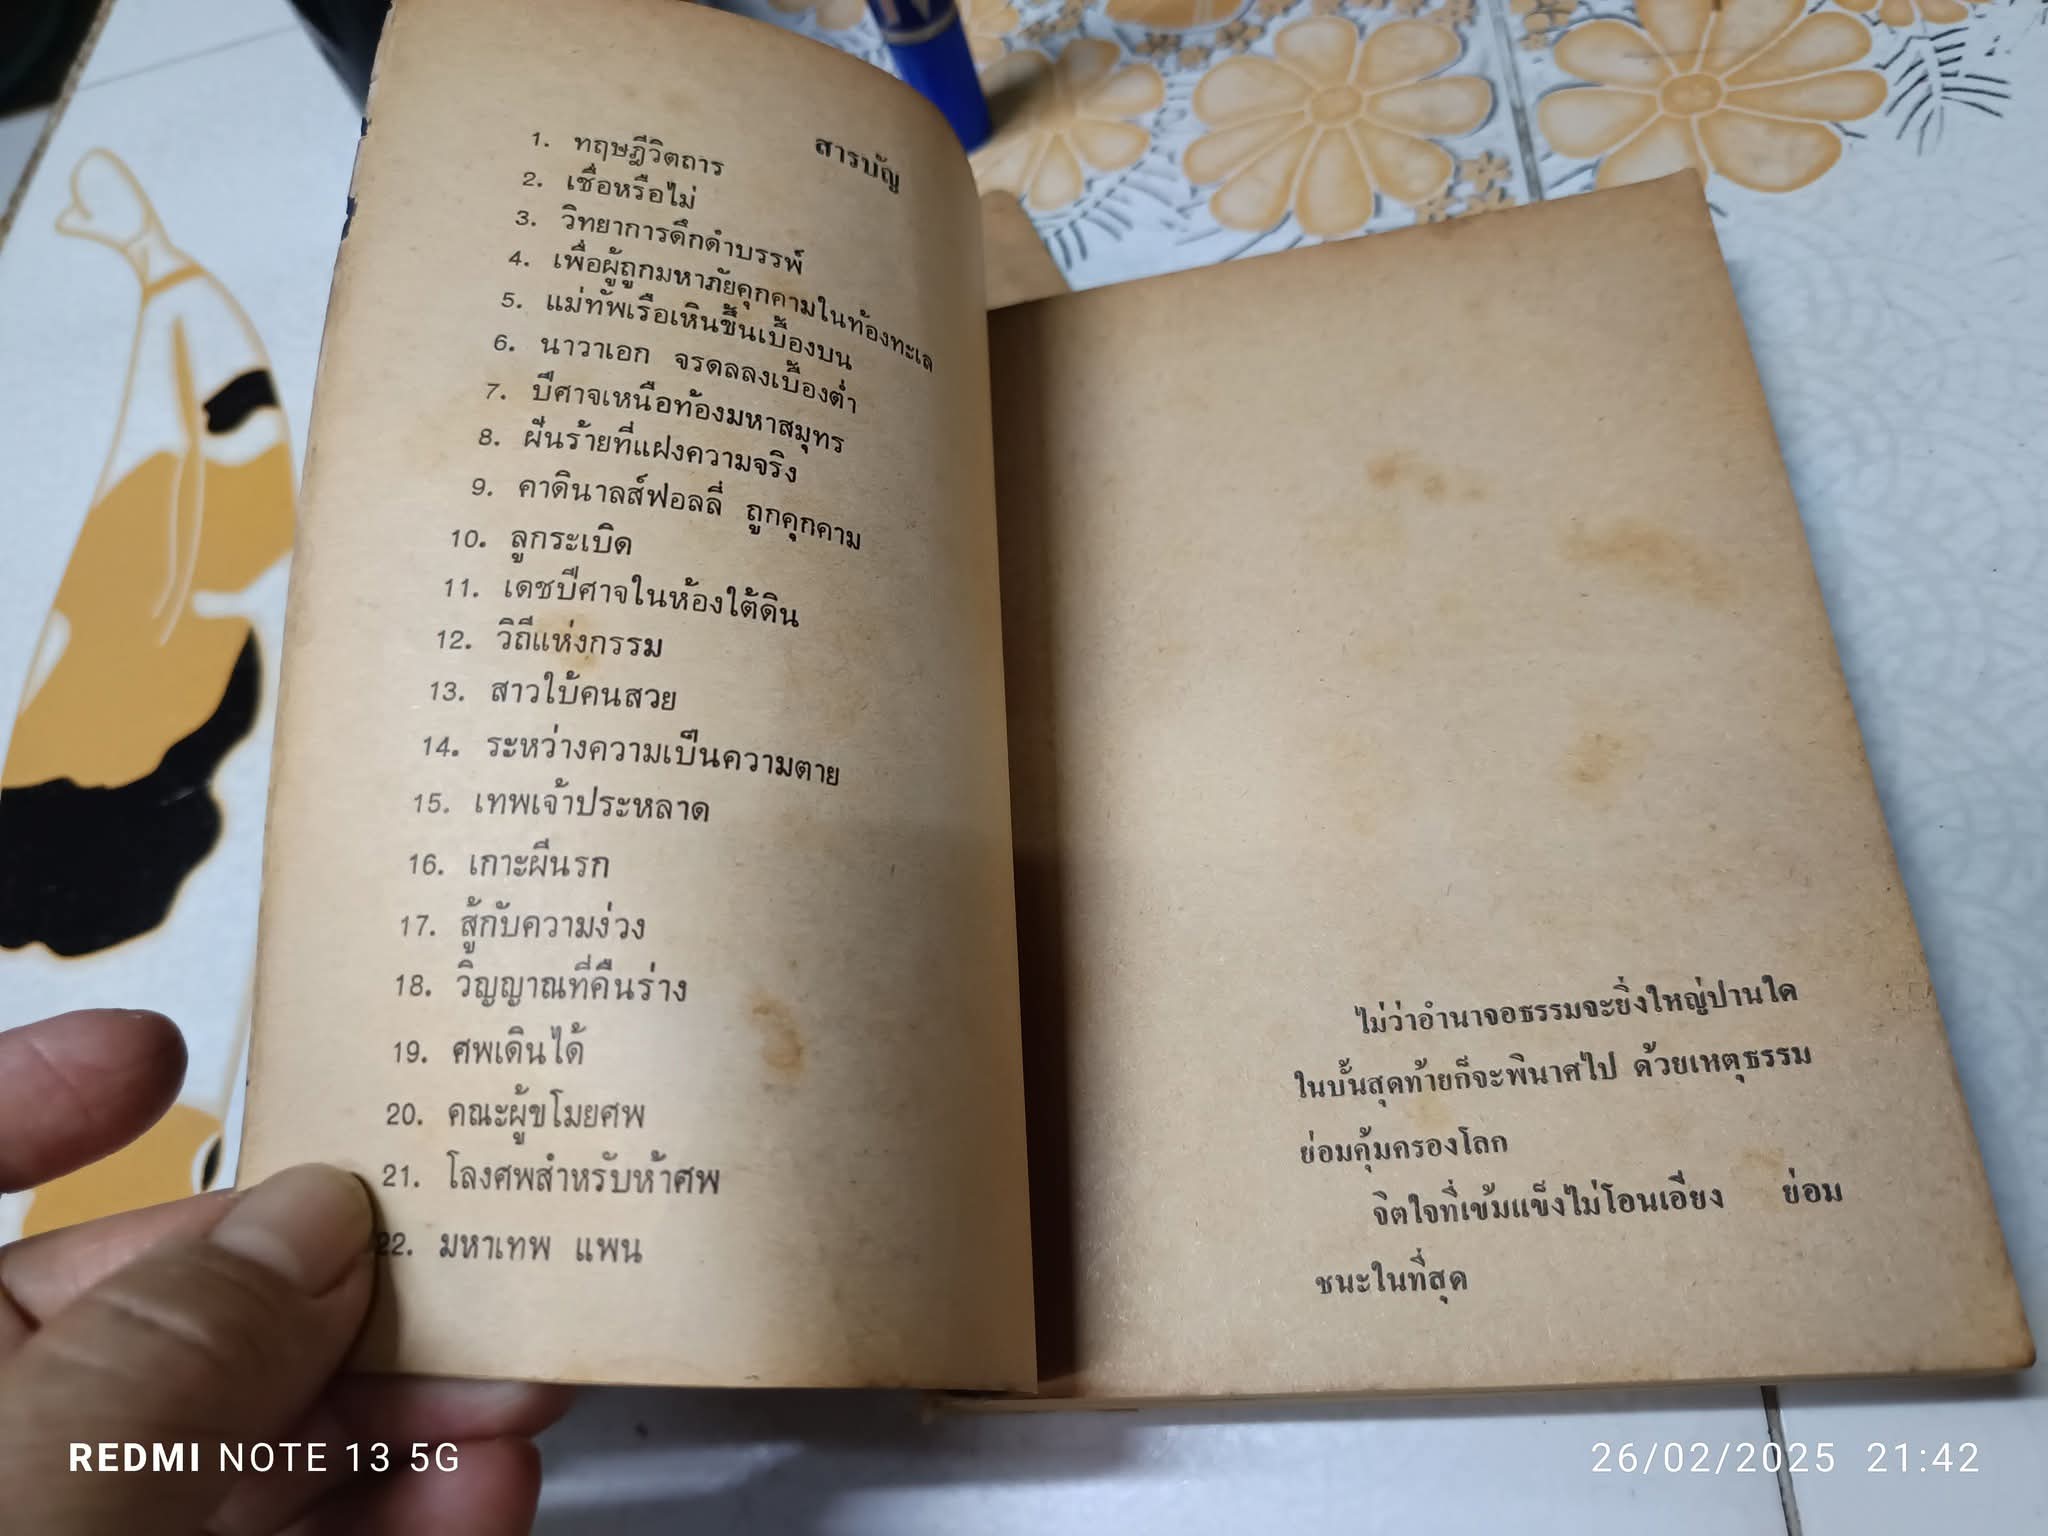 สารบัญ
1. ทฤษฎีวิตถาร
2. เชื่อหรือไม่
3. วิทยาการดึกดำบรรพ์
4. เพื่อผู้ถูกมหาภัยคุกคามในท้องทะเล
5. แม่ทัพเรือเหินขึ้นเบื้องบน
6. นาวาเอก จรดลลงเบื้องต่ำ
7. ปีศาจเหนือท้องมหาสมุทร
8. ฝันร้ายที่แฝงความจริง
9. คาดินาลส์ฟอลลี่ ถูกคุกคาม
10. ลูกระเบิด
11. เดชปีศาจในห้องใต้ดิน
12. วิถีแห่งกรรม
13. สาวใบ้คนสวย
14. ระหว่างความเป็นความตาย
15. เทพเจ้าประหลาด
16. เกาะผีนรก
17. สู้กับความง่วง
18. วิญญาณที่คืนร่าง
19. ศพเดินได้
20. คณะผู้ขโมยศพ
21. โลงศพสำหรับห้าศพ
22. มหาเทพ แพน
ไม่ว่าอำนาจอธรรมจะยิ่งใหญ่ปานใด
ในบั้นสุดท้ายก็จะพินาศไป ด้วยเหตุธรรม
ย่อมคุ้มครองโลก
จิตใจที่เข้มแข็งไม่โอนเอียง ย่อม
ชนะในที่สุด
REDMI NOTE 13 5G
26/02/2025 21:42